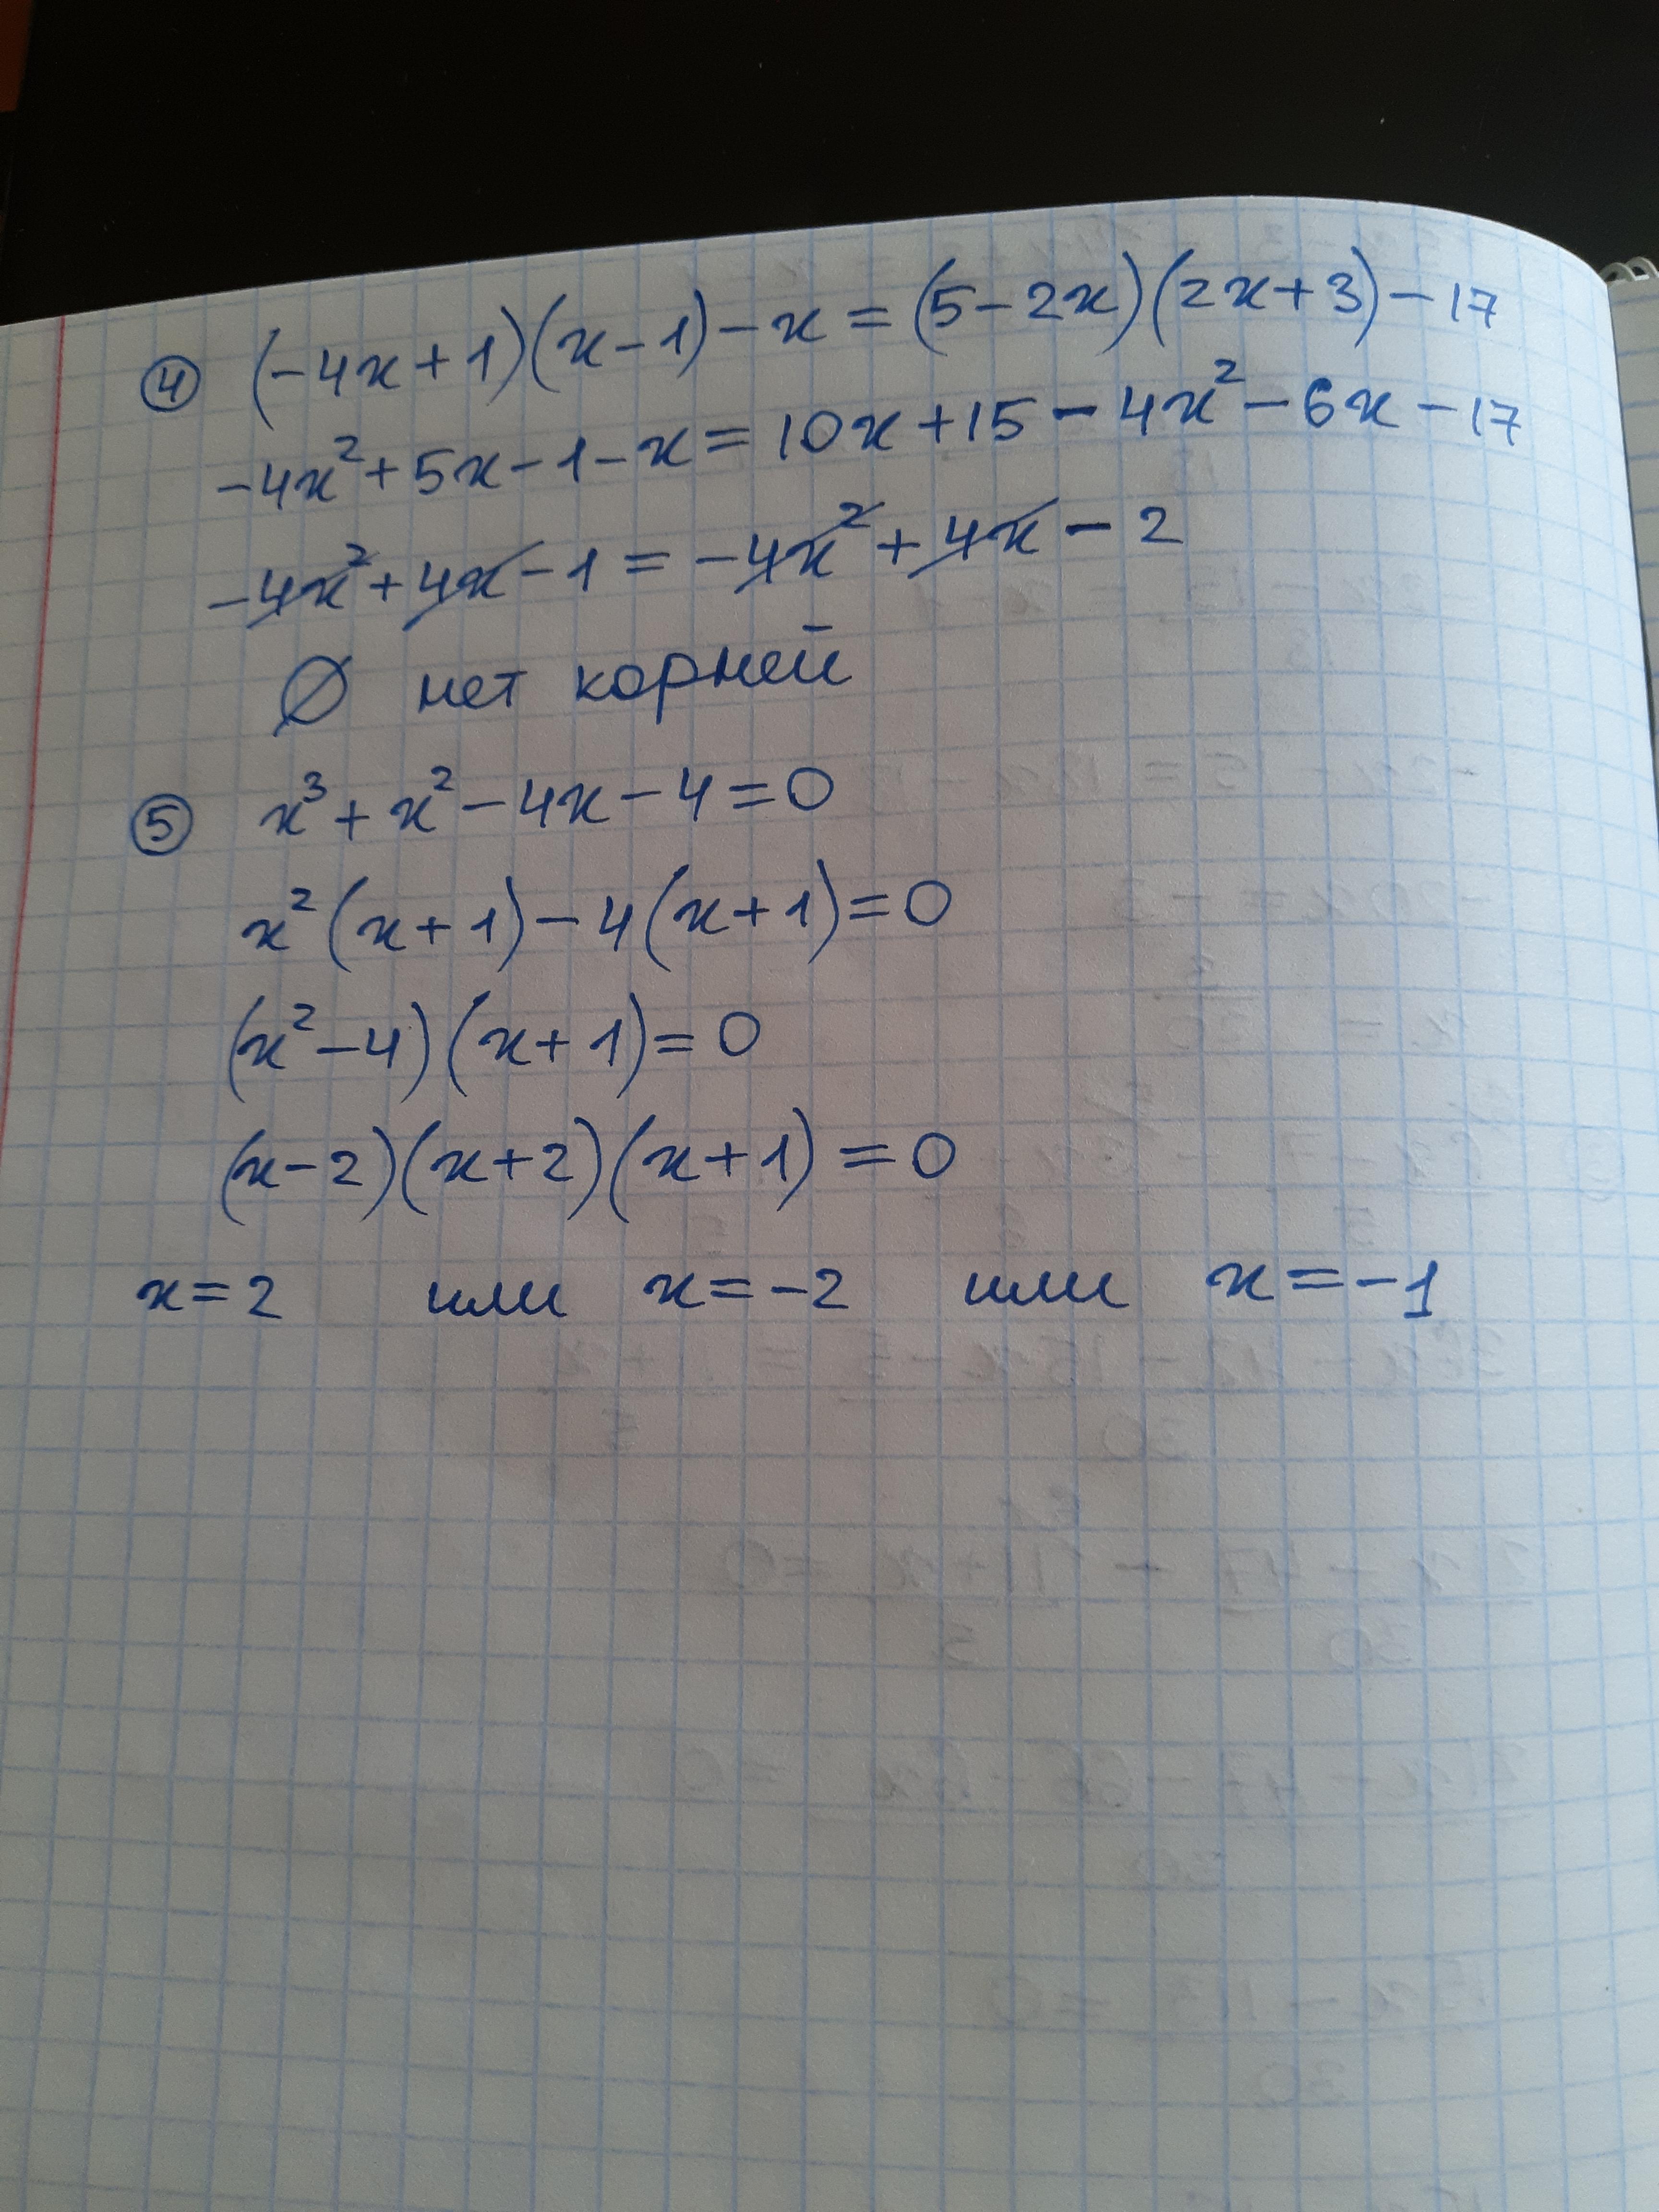 ④ (-4x+1)(x-1)-x=(5-2x)(2x+3)-17
-4x²+5x-1-x=10x+15-4x²-6x-17
-4x²+4x-1=-4x²+4x-2
∅ нет корней
⑤ x³+x²-4x-4=0
x²(x+1)-4(x+1)=0
(x²-4)(x+1)=0
(x-2)(x+2)(x+1)=0
x=2 или x=-2 или x=-1